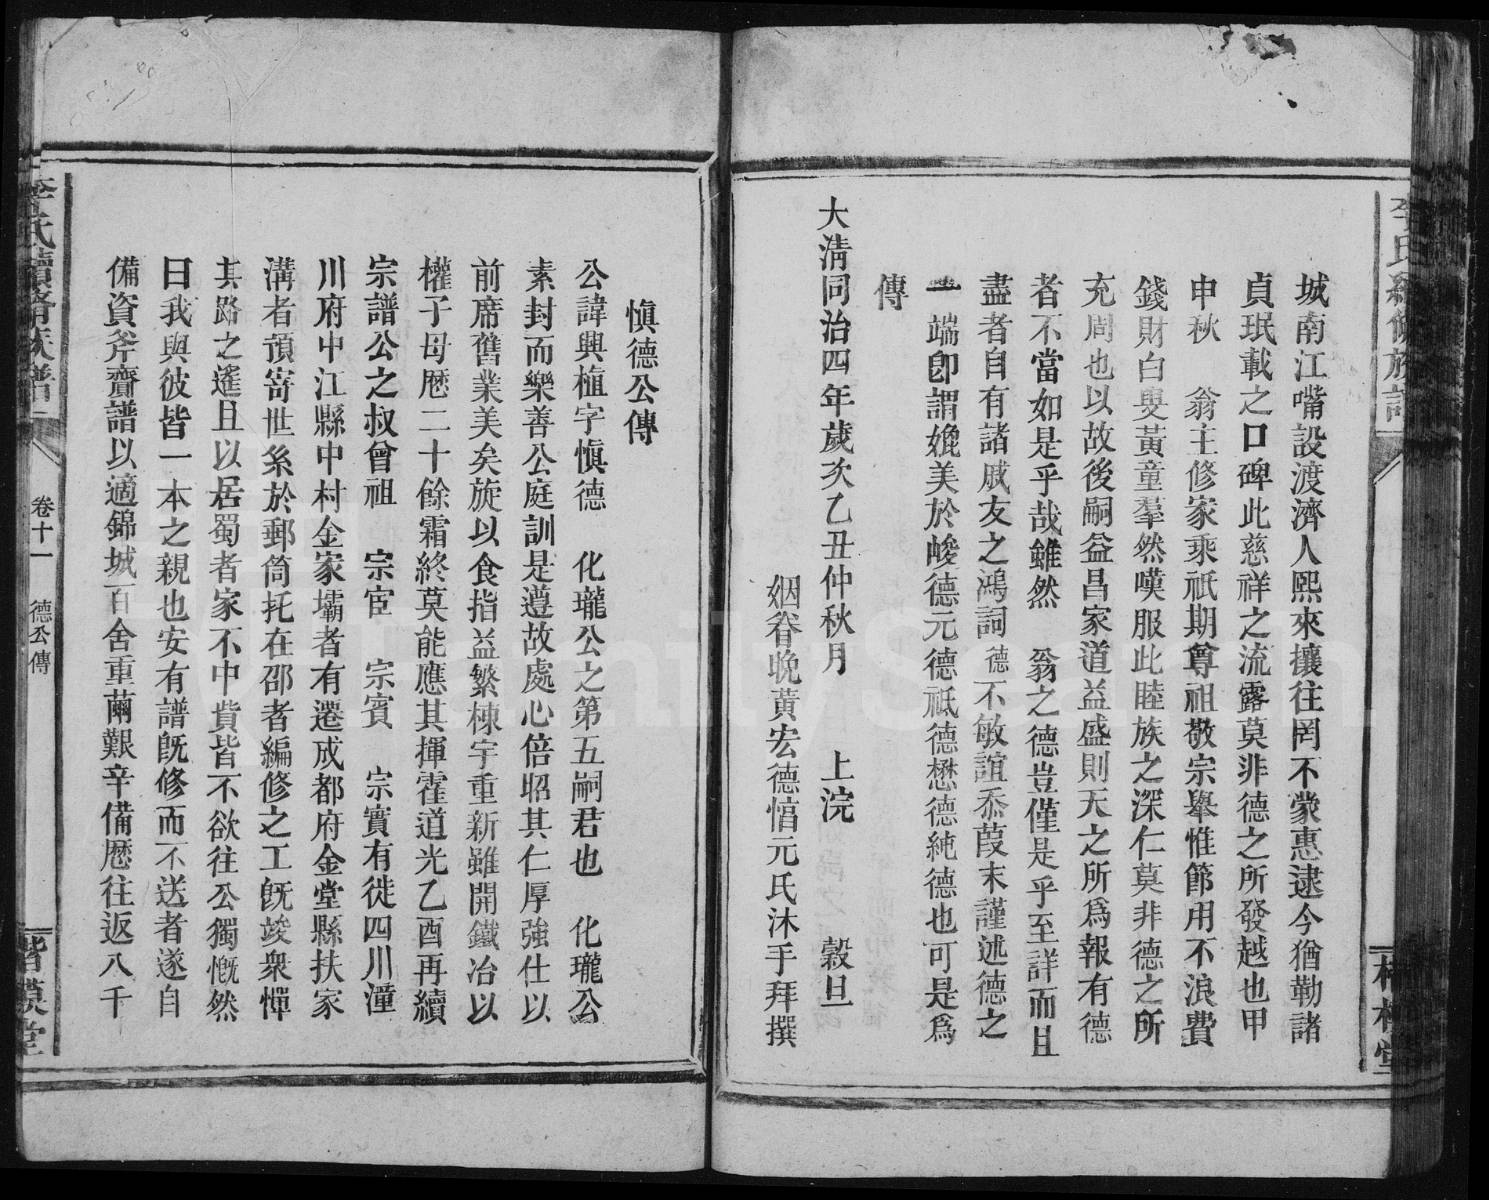 城南江嘴設渡濟人熙來攘往罔不蒙惠逮今猶勒諸
貞珉載之口碑此慈祥之流露莫非德之所發越也甲
申秋　翁主修家乘祇期尊祖敬宗舉惟節用不浪費
錢財白叟黃童羣然嘆服此睦族之深仁莫非德之所
充周也以故後嗣益昌家道益盛則天之所為報有德
者不當如是乎哉雖然　翁之德豈僅是乎至詳而且
盡者自有諸戚友之鴻詞德不敏誼忝葭末謹述德之
一端卽謂媲美於峻德元德祗德懋德純德也可是為
傳
大淸同治四年歲次乙丑仲秋月　上浣　穀旦
姻眷晚黃宏德愔元氏沐手拜撰
愼德公傳
公諱興植字愼德　化瓏公之第五嗣君也　化瓏公
素封而樂善公庭訓是遵故處心倍昭其仁厚強仕以
前席舊業美矣旋以食指益繁棟宇重新雖開鐵冶以
權子母歷二十餘霜終莫能應其揮霍道光乙酉再續
宗譜公之叔曾祖　宗宦　宗賓　宗實有徙四川潼
川府中江縣中村金家壩者有遷成都府金堂縣扶家
溝者預寄世系於郵筒托在邵者編修之工旣竣衆憚
其路之遙且以居蜀者家不中貲皆不欲往公獨慨然
曰我與彼皆一本之親也安有譜旣修而不送者遂自
備資斧齎譜以適錦城百舍重繭艱辛備歷往返八千
李氏續脩族譜
卷十一
德公傳